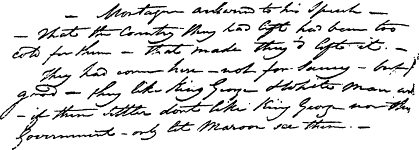 — Montague answered to his Speech —
— that the Country they had left had been too
cold for them — that made they'd left it. —
They had come here — not for Money — but for
good — they like King George & White Man and
— if them settler dont like King George nor this
Government — only let Maroon see them. —